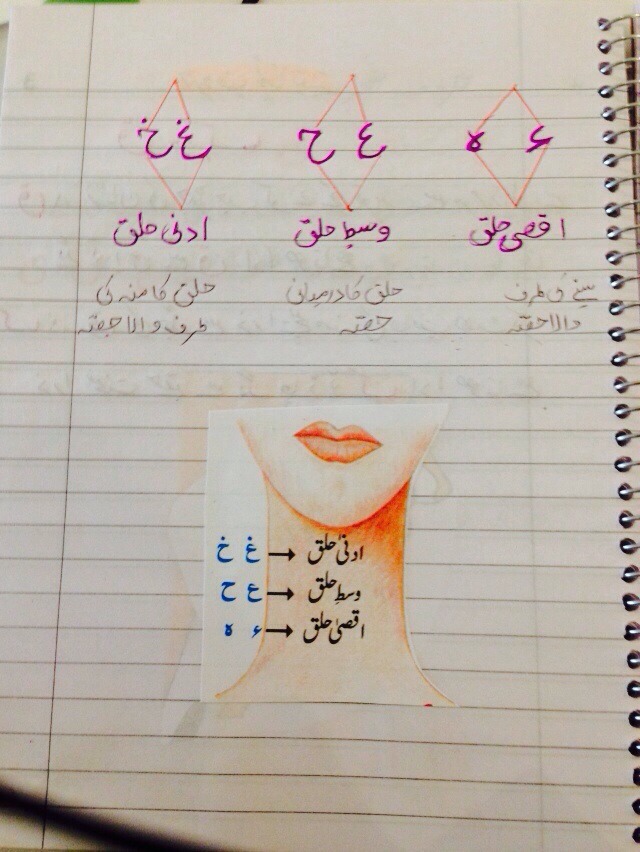 ء ہ
ع ح
غ خ
اقصیٰ حلق
وسطِ حلق
ادنیٰ حلق
سینے کی طرف
والا حصّہ
حلق کا درمیانی
حصّہ
حلق کا منہ کی
طرف والا حصّہ
ادنیٰ حلق → غ خ
وسطِ حلق → ع ح
اقصیٰ حلق → ء ہ